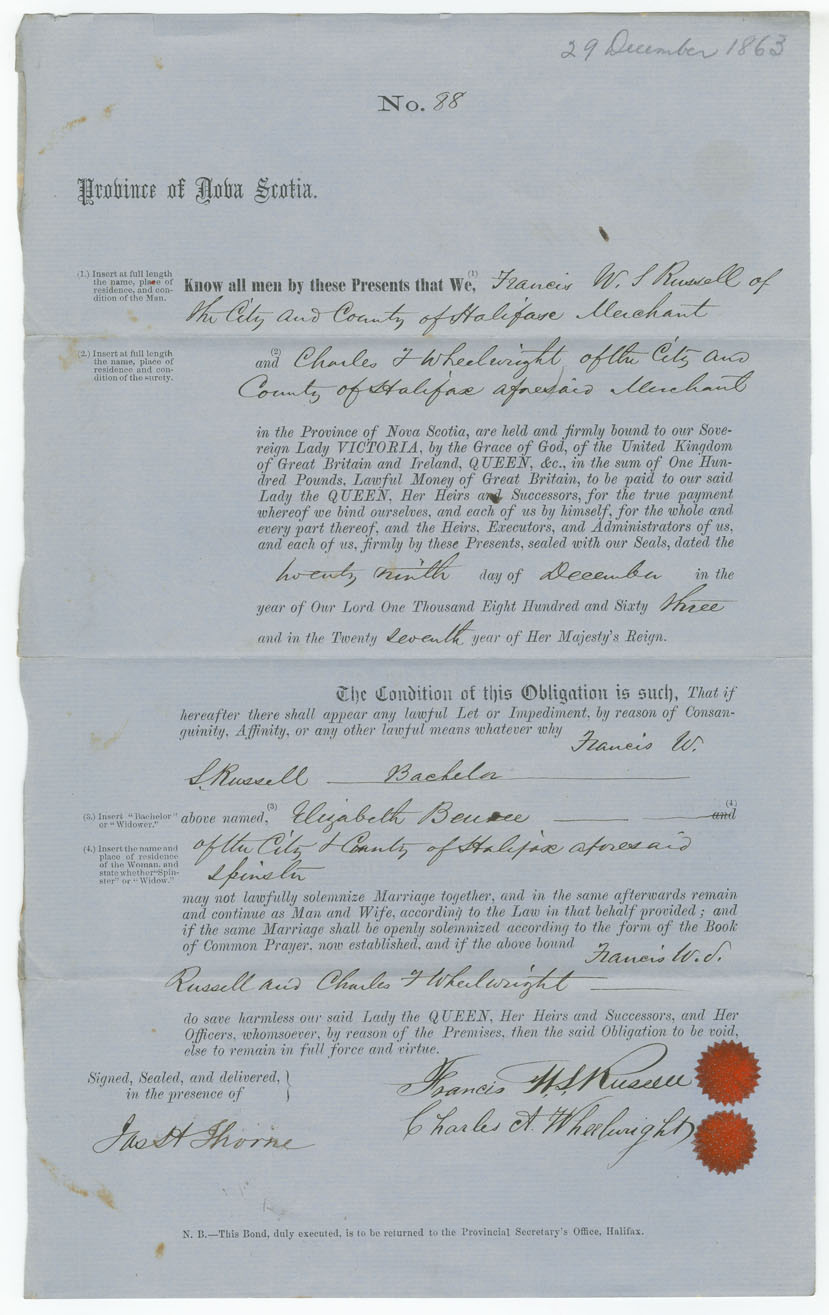 29 December 1863
No. 88
Province of Nova Scotia.
(1.) Insert at full length
the name, place of
residence, and con-
dition of the Man.
Know all men by these Presents that We, (1) Francis W. S Russell of
the City and County of Halifax Merchant
(2.) Insert at full length
the name, place of
residence and con-
dition of the surety.
and (2) Charles F Wheelwright of the City and
County of Halifax aforesaid Merchant
in the Province of Nova Scotia, are held and firmly bound to our Sove-
reign Lady VICTORIA, by the Grace of God, of the United Kingdom
of Great Britain and Ireland, QUEEN, &c., in the sum of One Hun-
dred Pounds, Lawful Money of Great Britain, to be paid to our said
Lady the QUEEN, Her Heirs and Successors, for the true payment
whereof we bind ourselves, and each of us by himself, for the whole and
every part thereof, and the Heirs, Executors, and Administrators of us,
and each of us, firmly by these Presents, sealed with our Seals, dated the
twenty ninth day of December in the
year of Our Lord One Thousand Eight Hundred and Sixty three
and in the Twenty seventh year of Her Majesty's Reign.
The Condition of this Obligation is such, That if
hereafter there shall appear any lawful Let or Impediment, by reason of Consan-
guinity, Affinity, or any other lawful means whatever why
Francis W.
S. Russell Bachelor
(3.) Insert "Bachelor"
or "Widower."
above named, (3) Elizabeth (4) and
(4.) Insert the name and
place of residence
of the Woman, and
state whether "Spin-
ster" or "Widow."
of the City & County of Halifax aforesaid
Spinster
may not lawfully solemnize Marriage together, and in the same afterwards remain
and continue as Man and Wife, according to the Law in that behalf provided; and
if the same Marriage shall be openly solemnized according to the form of the Book
of Common Prayer, now established, and if the above bound Francis W. S.
Russell and Charles F Wheelwright
do save harmless our said Lady the QUEEN, Her Heirs and Successors, and Her
Officers, whomsoever, by reason of the Premises, then the said Obligation to be void,
else to remain in full force and virtue.
Signed, Sealed, and delivered,
in the presence of
Francis W. S Russell
Charles A. Wheelwright
Jas H Thorne
N. B.—This Bond, duly executed, is to be returned to the Provincial Secretary's Office, Halifax.